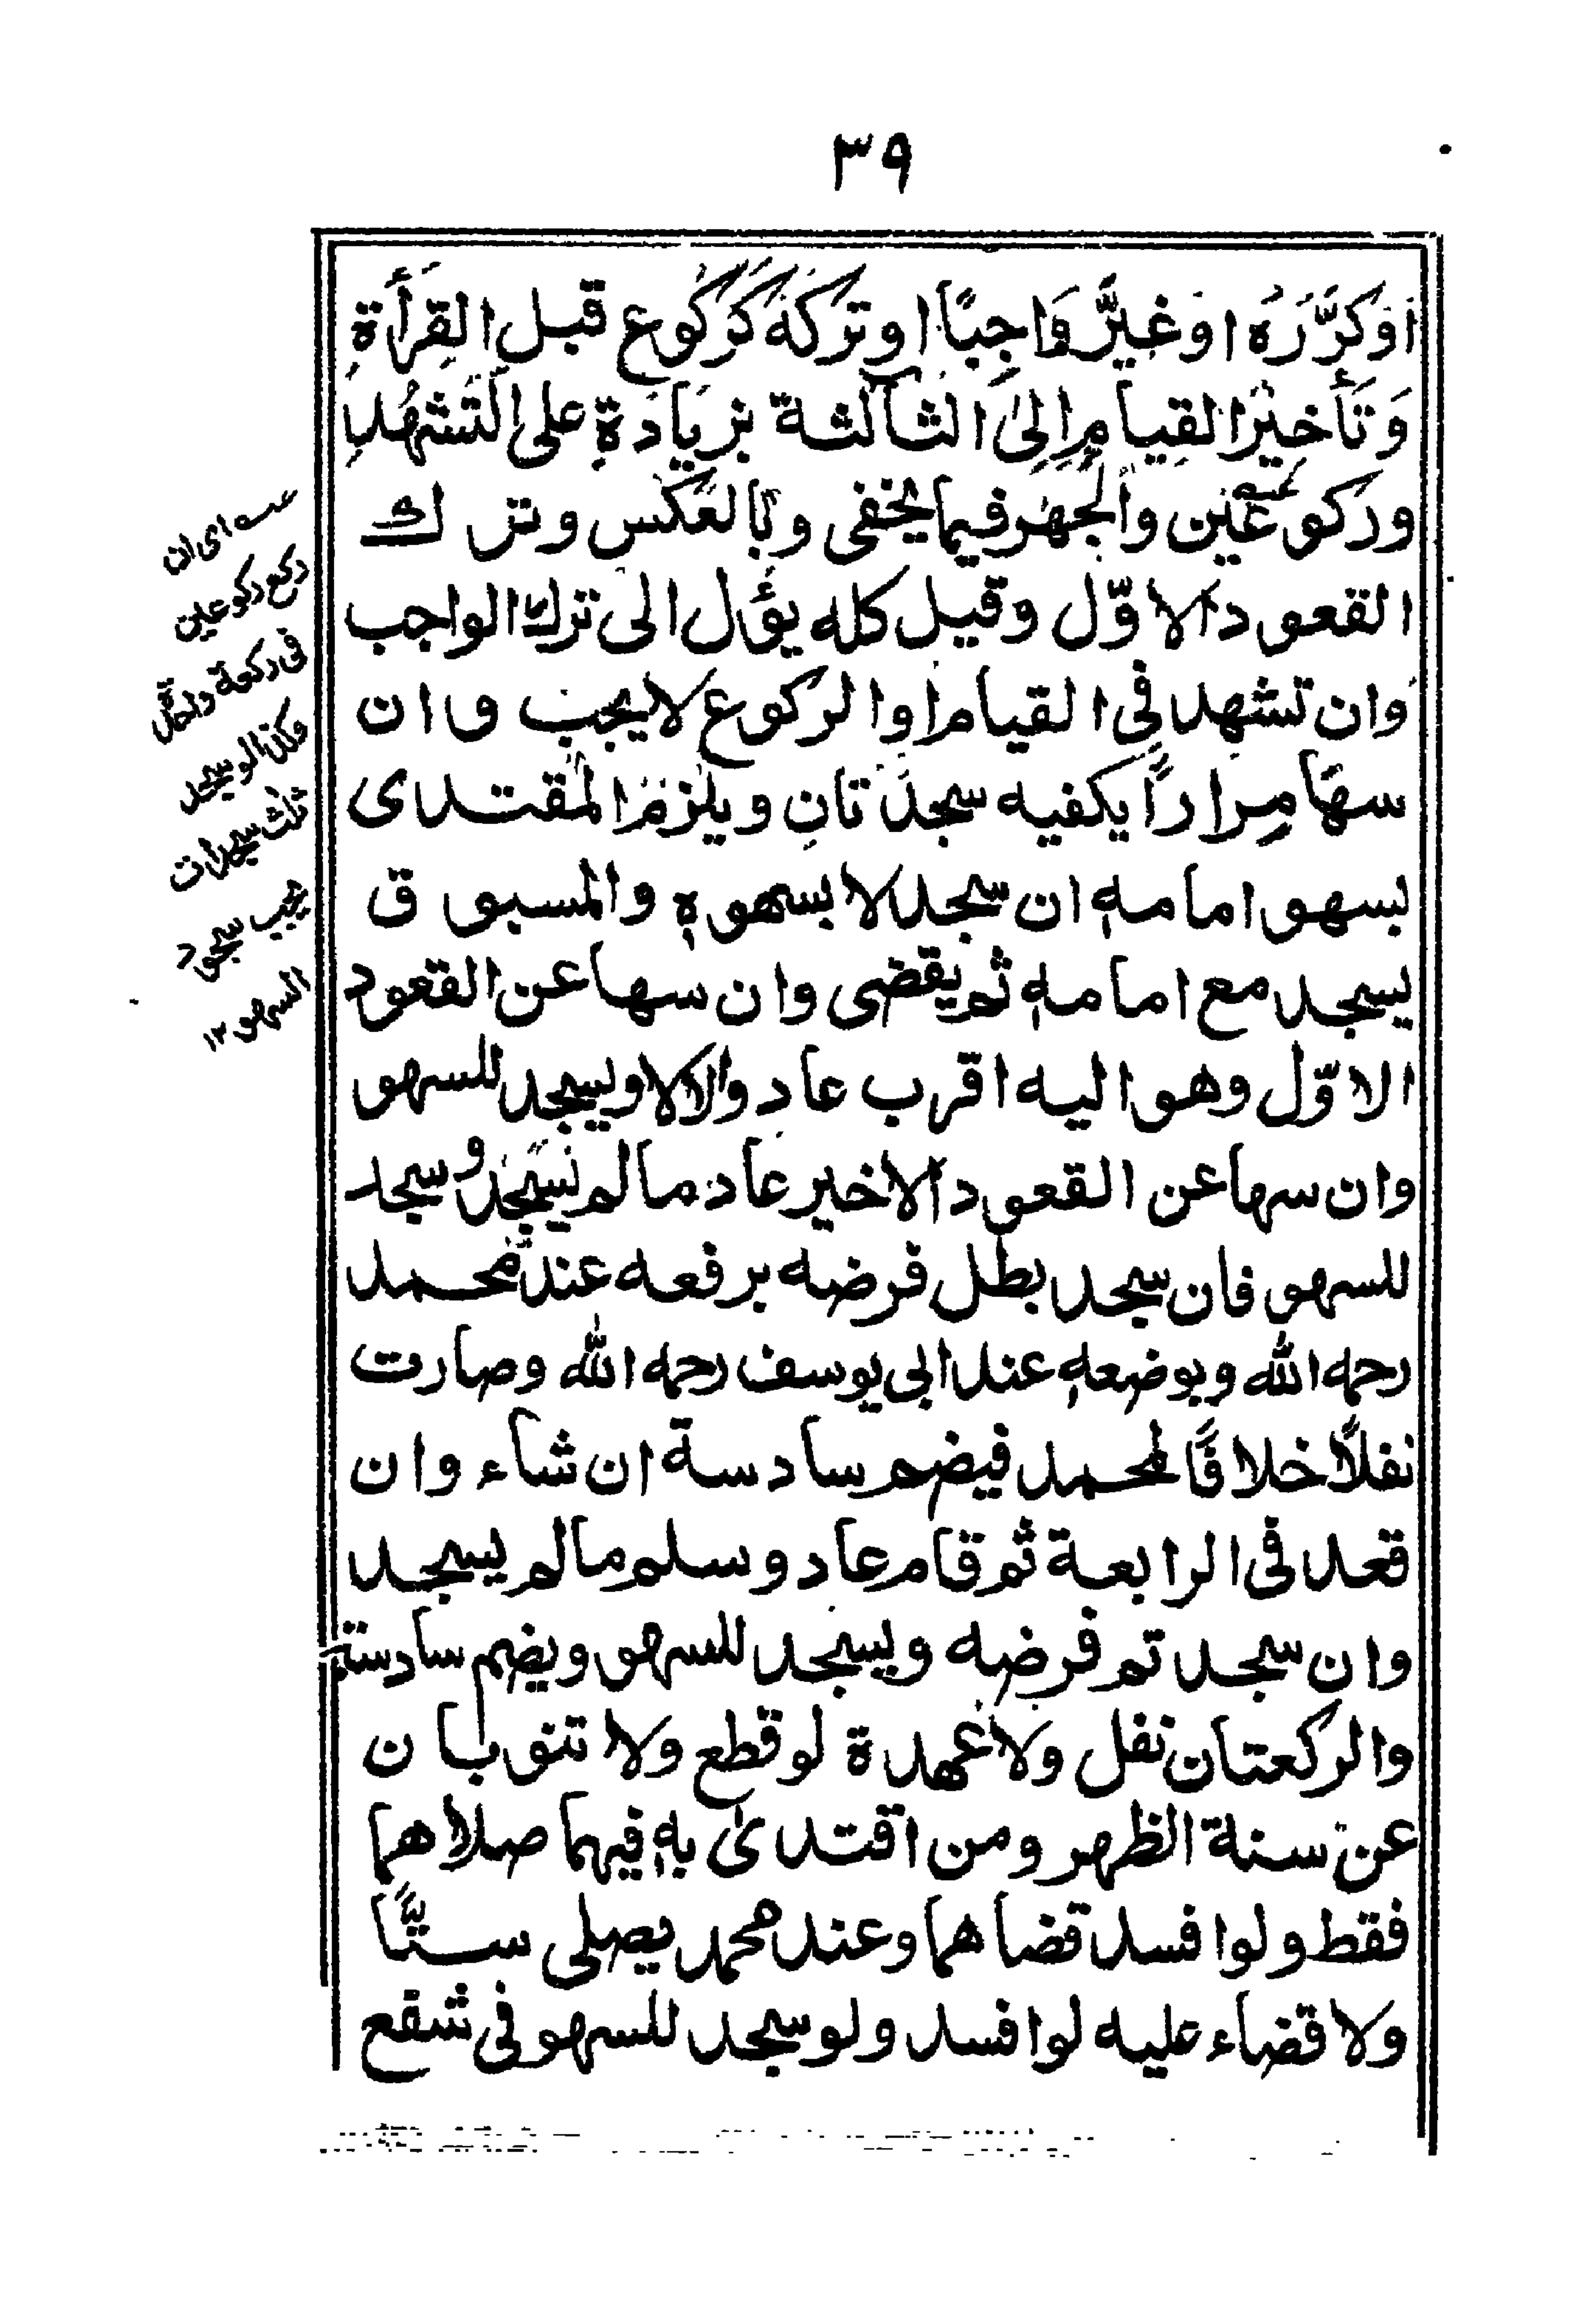 ٣٩
اَوْكَرَّرَهُ اوغَيَّرَ وَاجِبًا اوتَرَكَهُ كَرُكُوعٍ قبل القِرَأَةِ
وَتَأخِيْرُ القِيامِ اِلىَ الثالثة بزِيَادَةٍ على التَشَهُّدِ
وركوعين والجهر فيما يخفى وبالعكس وترك
القعود الاوّل وقيل كله يؤل الى ترك الواجب
وان تشهد فى القيام اوا لركوع لا يجب وان
سهَا مِرارًا يكفيه سجدتانِ ويلزم المقتدى
بسهو امامه ان سجد لا بسهوه والمسبوق
يسجد مع امامه ثم يقضى وان سها عن القعود
الاوّل وهو اليه اقرب عاد والا لا ويسجد للسهو
وان سها عن القعود الاخير عاد مالم يسجد وسجد
للسهو فان سجد بطل فرضه برفعه عند محمد
رحمه الله وبوضعه عند ابى يوسف رحمه الله وصارت
نفلاً خلافًا لمحمد فيضم سادسة ان شاء وان
قعد فى الرابعة ثم قام عاد وسلم مالم يسجد
وان سجد تم فرضه ويسجد للسهو ويضم سادسة
والركعتان نفل ولا عهدة لو قطع ولا تنوبان
عن سنة الظهر ومن اقتدىٰ به فيهما صلاهما
فقط ولو افسد قضاهما وعند محمد يصلى ستًّا
ولا قضاء عليه لو افسد ولو سجد للسهو فى شفع
اى ان
ركع ركوعين
فى ركعة واحدة
وكذا لو سجد
ثلث سجدات
يجب سجود
السهو ١٢